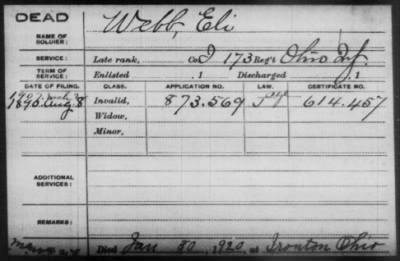 DEAD
NAME OF SOLDIER: Webb, Eli
SERVICE: Late rank, Co I 173 Reg't Ohio Inf
TERM OF SERVICE: Enlisted , 1 Discharged , 1
DATE OF FILING. CLASS. APPLICATION NO. LAW. CERTIFICATE NO.
1890 Aug. 8 Invalid, 873.569 614.457
Widow,
Minor,
ADDITIONAL SERVICES:
REMARKS:
Died Jan 30, 1920, at Ironton Ohio